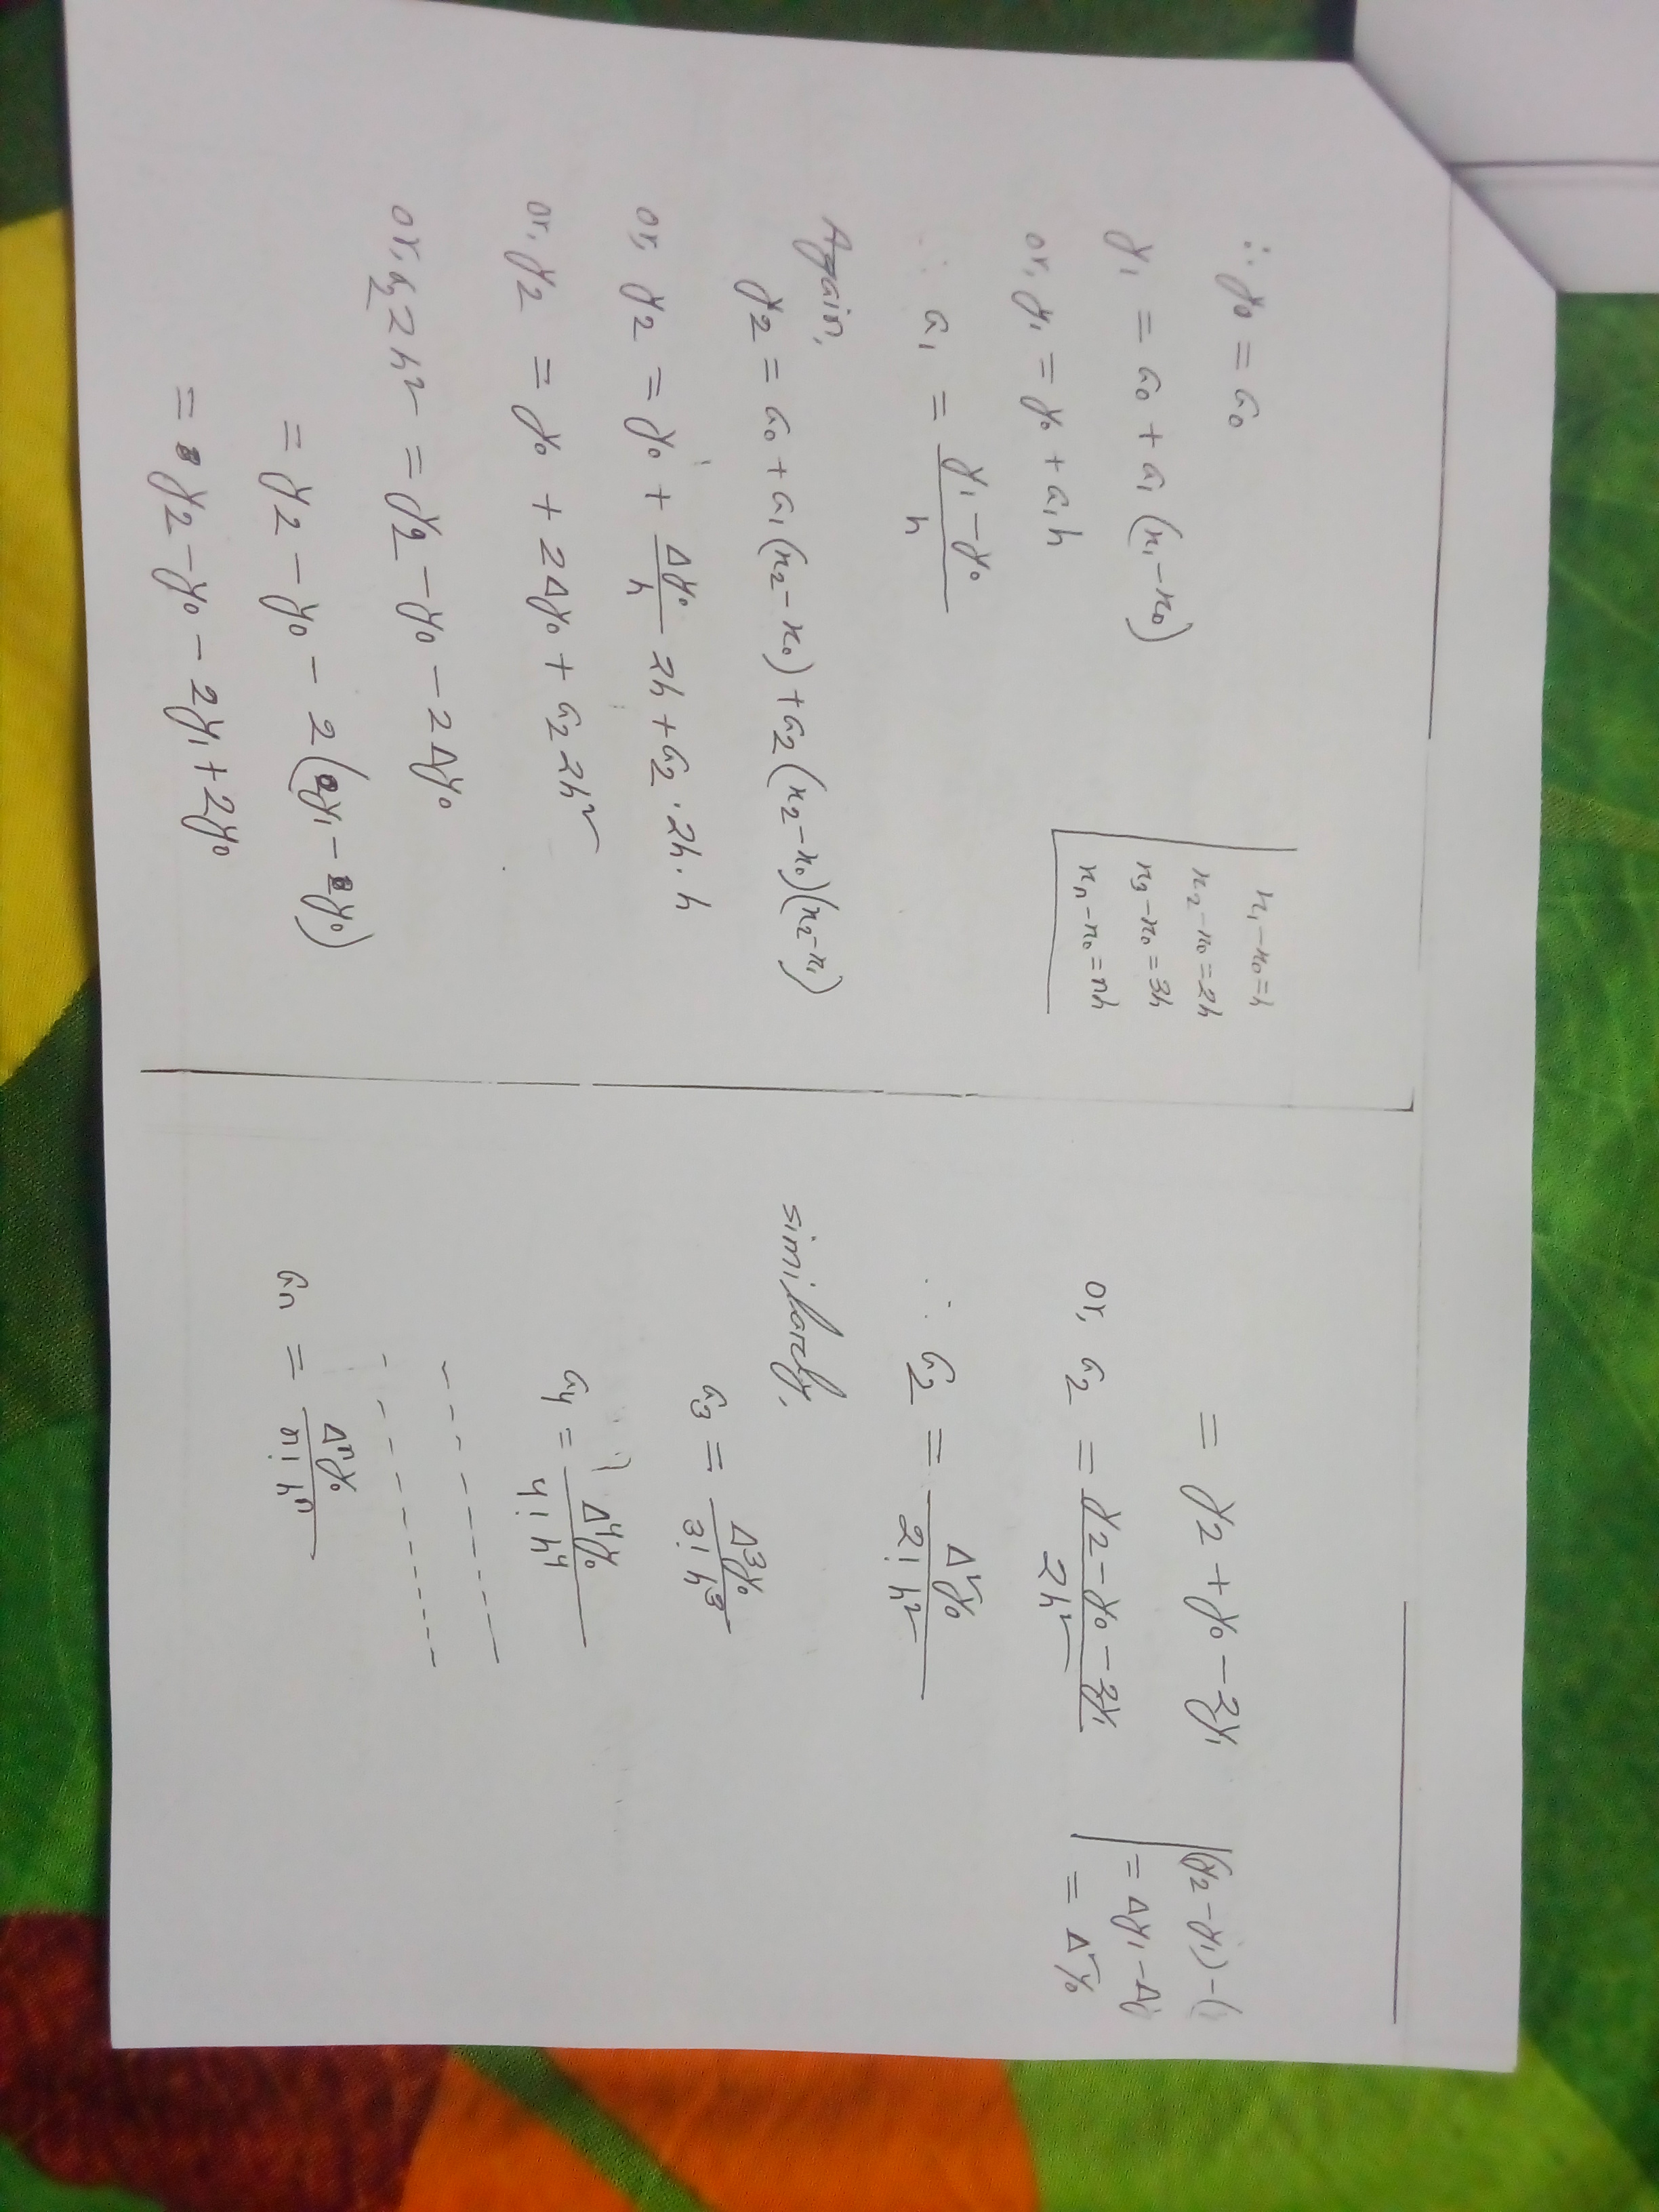 ∴ y₀ = a₀
y₁ = a₀ + a₁ (x₁ – x₀)
or, y₁ = y₀ + a₁h
∴ a₁ = (y₁ – y₀) / h
x₁ – x₀ = h
x₂ – x₀ = 2h
x₃ – x₀ = 3h
xₙ – x₀ = nh
Again,
y₂ = a₀ + a₁ (x₂ – x₀) + a₂ (x₂ – x₀)(x₂ – x₁)
or, y₂ = y₀ + Δy₀/h 2h + a₂ · 2h · h
or, y₂ = y₀ + 2Δy₀ + a₂ 2h²
or, a₂ 2h² = y₂ – y₀ – 2Δy₀
= y₂ – y₀ – 2(y₁ – y₀)
= y₂ – y₀ – 2y₁ + 2y₀
= y₂ + y₀ – 2y₁
or, a₂ = (y₂ – y₀ – 2y₁) / 2h²
(y₂ – y₁) – (
= Δy₁ – Δ
= Δ²y₀
∴ a₂ = Δ²y₀ / 2! h²
similarly,
a₃ = Δ³y₀ / 3! h³
a₄ = Δ⁴y₀ / 4! h⁴
- - - - - - - -
- - - - - - - -
aₙ = Δⁿy₀ / n! hⁿ